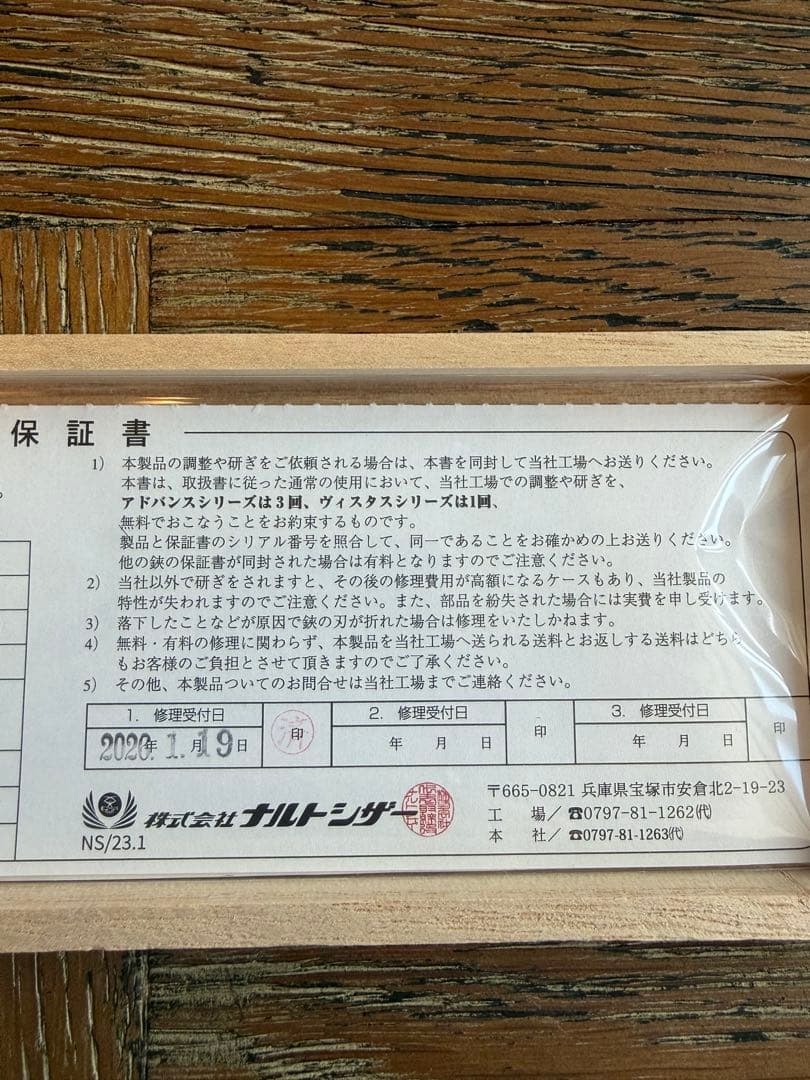 保証書
。
1) 本製品の調整や研ぎをご依頼される場合は、本書を同封して当社工場へお送りください。
本書は、取扱書に従った通常の使用において、当社工場での調整や研ぎを、
アドバンスシリーズは3回、ヴィスタスシリーズは1回、
無料でおこなうことをお約束するものです。
製品と保証書のシリアル番号を照合して、同一であることをお確かめの上お送りください。
他の鋏の保証書が同封された場合は有料となりますのでご注意ください。
2) 当社以外で研ぎをされますと、その後の修理費用が高額になるケースもあり、当社製品の
特性が失われますのでご注意ください。また、部品を紛失された場合には実費を申し受けます。
3) 落下したことなどが原因で鋏の刃が折れた場合は修理をいたしかねます。
4) 無料・有料の修理に関わらず、本製品を当社工場へ送られる送料とお返しする送料はどちら
もお客様のご負担とさせて頂きますのでご了承ください。
5) その他、本製品ついてのお問合せは当社工場までご連絡ください。
1. 修理受付日 印 2. 修理受付日 印 3. 修理受付日 印
2026年 1.月19日 済 年 月 日 年 月 日
株式会社ナルトシザー
NS/23.1
〒665-0821 兵庫県宝塚市安倉北2-19-23
工場/☎0797-81-1262㈹
本社/☎0797-81-1263㈹